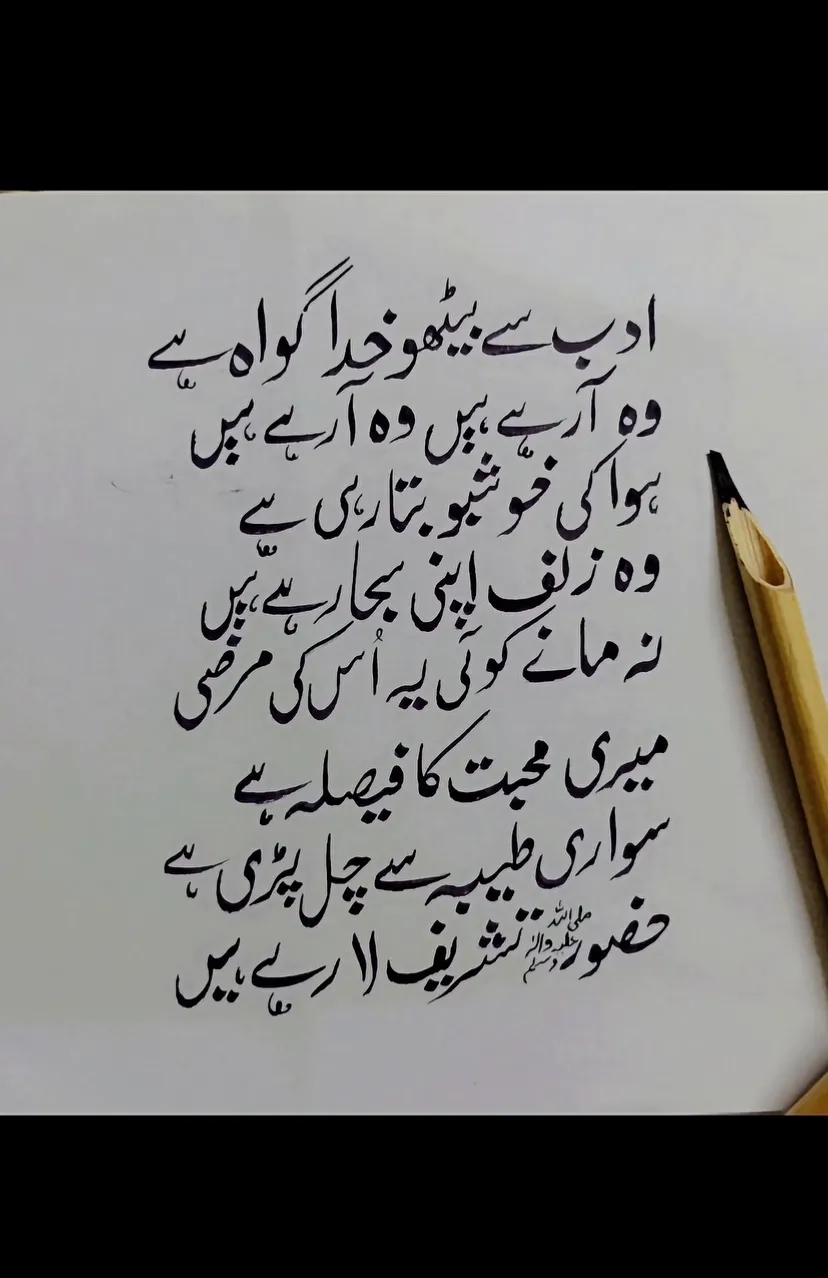 ادب سے بیٹھو خدا گواہ ہے
وہ آرہے ہیں وہ آرہے ہیں
ہوا کی خوشبو بتا رہی ہے
وہ زلف اپنی سجا رہے ہیں
نہ مانے کوئی یہ اُس کی مرضی
میری محبت کا فیصلہ ہے
سواری طیبہ سے چل پڑی ہے
حضور صلی اللہ علیہ وآلہ وسلم تشریف لا رہے ہیں